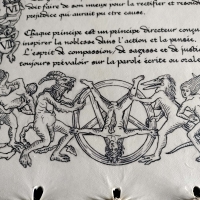 doit faire de son mieux pour la rectifier et résoudre
préjudice qui aurait pu être causé.
Chaque principe est un principe directeur conçu
inspirer la noblesse dans l'action et la pensée.
L'esprit de compassion, de sagesse et de justice
toujours prévaloir sur la parole écrite ou orale